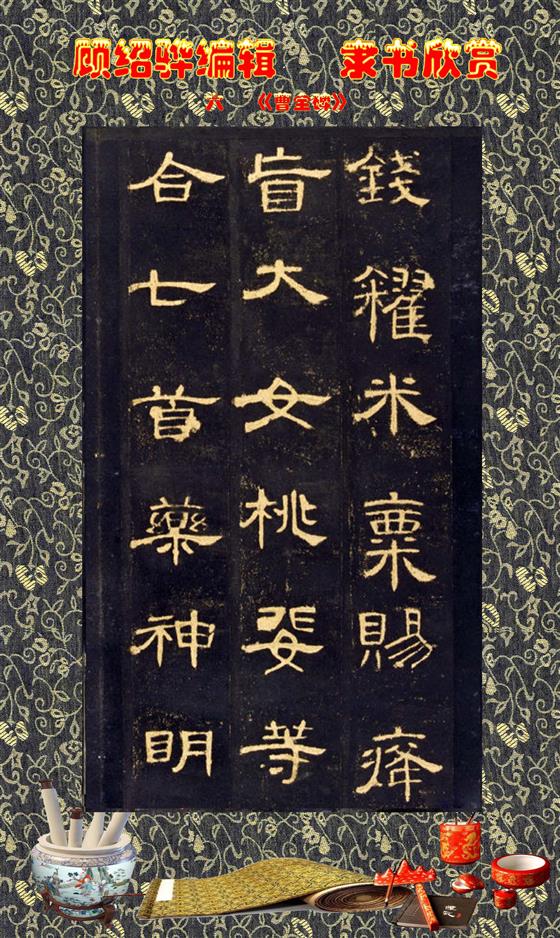 顾绍骅编辑 隶书欣赏
六 《曹全碑》
錢糴米粟賜癃
盲大女桃婓等
合七首藥神明